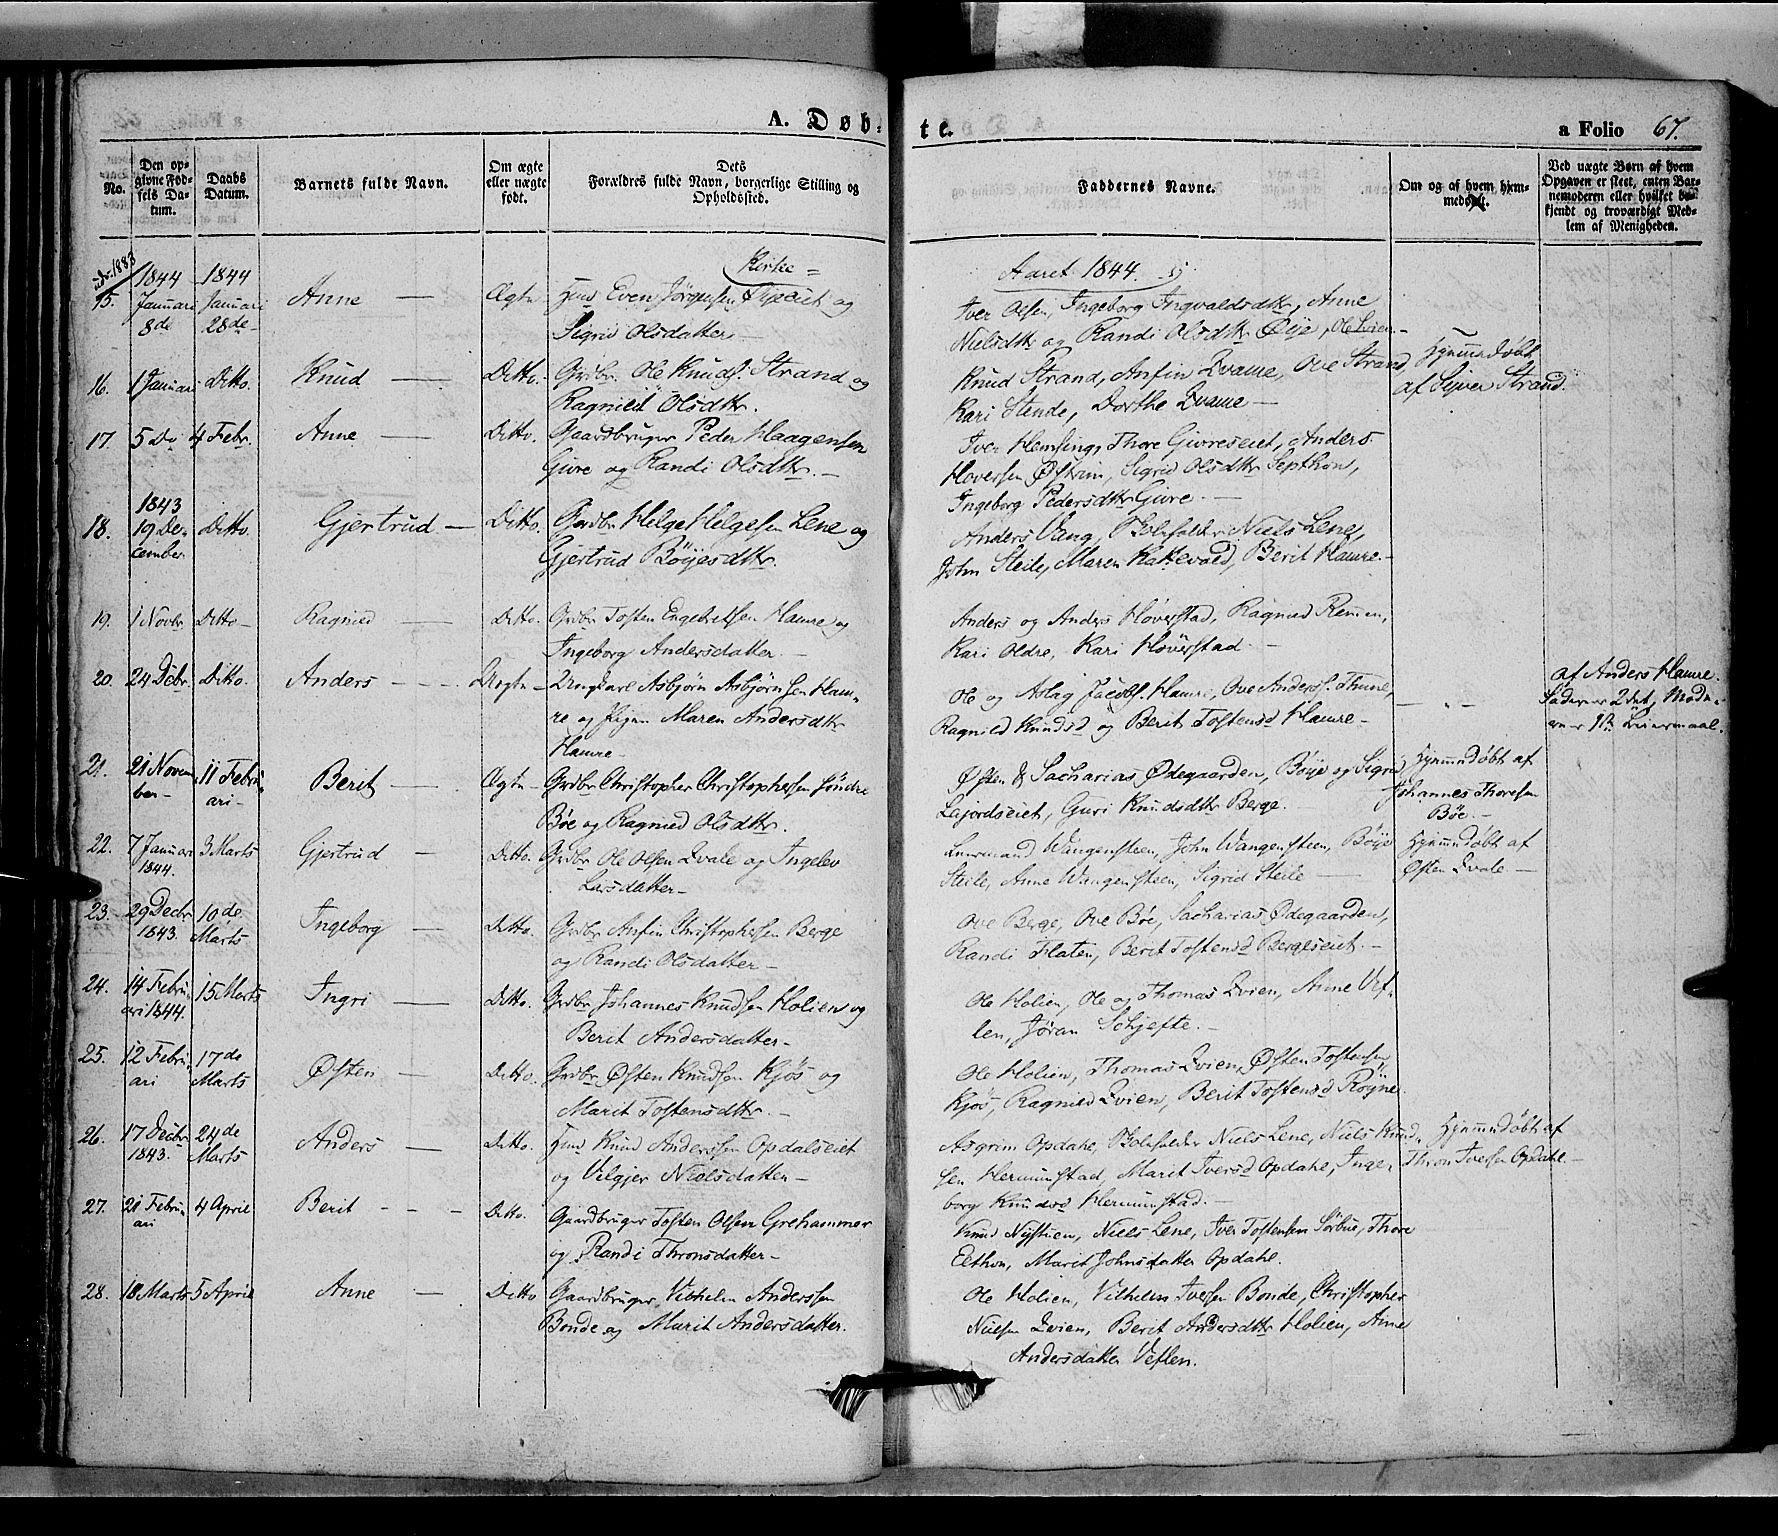 A. Døb-
te.
a Folio 67.
No.
Den op-
givne Fød-
sels Da-
tum.
Daabs
Datum.
Barnets fulde Navn.
Om ægte
eller uægte
født.
Dets
Forældres fulde Navn, borgerlige Stilling og
Opholdssted.
Faddernes Navne.
Om og af hvem hjem-
medøbt.
Ved uægte Børn af hvem
Opgaven er skeet, enten Bar-
nemoderen eller hvilket be-
kjendt og troværdigt Med-
lem af Menigheden.
Kirke
Aaret 1844
15. 1844 Januari 8de
1844 Januari 28de
Anne
Ægte
Huus Even Jörgensen og
Sigrid Olsdatter
Iver Olsen, Ingeborg Ingvaldsdtr, Anne
Nielsdtr og Randi Olsdtr Øÿe, Ole Lien
16. 1 Januari Ditto.
Knud
Ditto.
Grdbr. Ole Knuds. Strand og
Ragnild Olsdtr.
Knud Strand, Anfin Qvame, Ove Strand
Kari Stende, Dorthe Qvame
Hjemmedøbt
af Siver Strand.
17. 5 Do 4 Febr.
Anne
Ditto.
Gaardbruger Peder Haagensen
Givre og Randi Olsdtr.
Iver Hemsing, Thore Givreseiet, Anders
Hoversen Østrim, Sigrid Olsdtr Septhon,
Ingeborg Pedersdtr Givre.
18. 1843 19 De-
cember
Ditto.
Gjertrud
Ditto.
Grdbr Helge Helgesen Lene og
Gjertrud Böyesdtr.
Anders Vang, Skoleholder Niels Lene,
John Steile, Maren Kattevold, Berit Hamre.
19. 1 Novbr Ditto
Ragnied
Ditto.
Grdbr Tosten Engebretsen Hamre og
Ingeborg Andersdatter
Anders og Anders Höverstad, Ragnied Remen,
Kari Oldre, Kari Höverstad.
20. 24 Dcbr Ditto.
Anders
Uægte
Ungkarl Asbjörn Asbjörnsen Ham-
re og Pigen Maren Andersdtr
Hamre
Ole og Aslag Jacobs. Hamre, Ove Anderss. Thune,
Ragnild Knudsd og Berit Tostensd Hamre
af Anders Hamre.
Faderen 2det, Mode-
rens 1te Leiermaal.
21. 21 Novem-
ber
11 Febru-
ari
Berit
Ægte
Grdbr Christopher Christophersen Söndre
Bøe og Ragnied Olsdtr.
Østen & Sacharias Ødegaarden, Böye og Sigrid
Lajordseiet, Guri Knudsdtr Berge.
Hjemmedøbt af
Johannes Thoresen
Bøe.
22. 7 Januari
1844.
3 Marts
Gjertrud
Ditto.
Grdbr Ole Olsen Qvale og Ingelev
Larsdatter
Wangensteen, John Wangensteen, Böye
Steile, Anne Wangensteen, Sigrid Steile
Hjemmedøbt af
Østen Qvale
23. 29 Decbr
1843.
10de
Marts
Ingeborg
Ditto.
Grdbr Anfin Christophersen Berge
og Randi Olsdatter
Ove Berge, Ove Bøe, Sacharias Ødegaarden,
Randi Flaten, Berit Tostensd Bergeseiet.
24. 14 Febru-
ari 1844.
15 Marts
Ingri
Ditto.
Grdbr Johannes Knudsen Holien og
Berit Andersdatter
Ole Holien, Ole og Thomas Qvien, Anne Vef-
len, Jöran Schjefte.
25. 12 Febru-
ari
17de
Marts
Østen
Ditto.
Grdbr Østen Knudsen Kjös og
Marit Tostensdtr.
Ole Holien, Thomas Qvien, Østen Tostensen
Kjös, Ragnied Qvien, Berit Tostensd Röyne.
26. 17 Decbr
1843.
24de
Marts
Anders
Ditto.
Huus Knud Anderssen Opdalseiet
og Vilgjer Nielsdatter
Asgrim Opdahl, Skoleholder Niels Lene, Niels Knud-
sen Hermundstad, Marit Iversd Opdahl, Inge-
borg Knudsd Hermundstad.
Hjemmedøbt af
Thron Iversen Opdahl.
27. 21 Febru-
ari
4 April
Berit
Ditto.
Gaardbruger Tosten Olsen Grehammer
og Randi Thronsdatter
Knud Nystuen, Niels Lene, Iver Tostensen Sörbue, Thore
Eethon, Marit Johnsdatter Opdahl.
28. 18 Marts 5 April
Anne
Ditto
Gaardbruger Vilhelm Anderssen
Bonde og Marit Andersdatter.
Ole Holien, Vilhelm Iversen Bonde, Christopher
Nielsen Qvien, Berit Andersdtr Holien, Anne
Andersdatter Veflen.